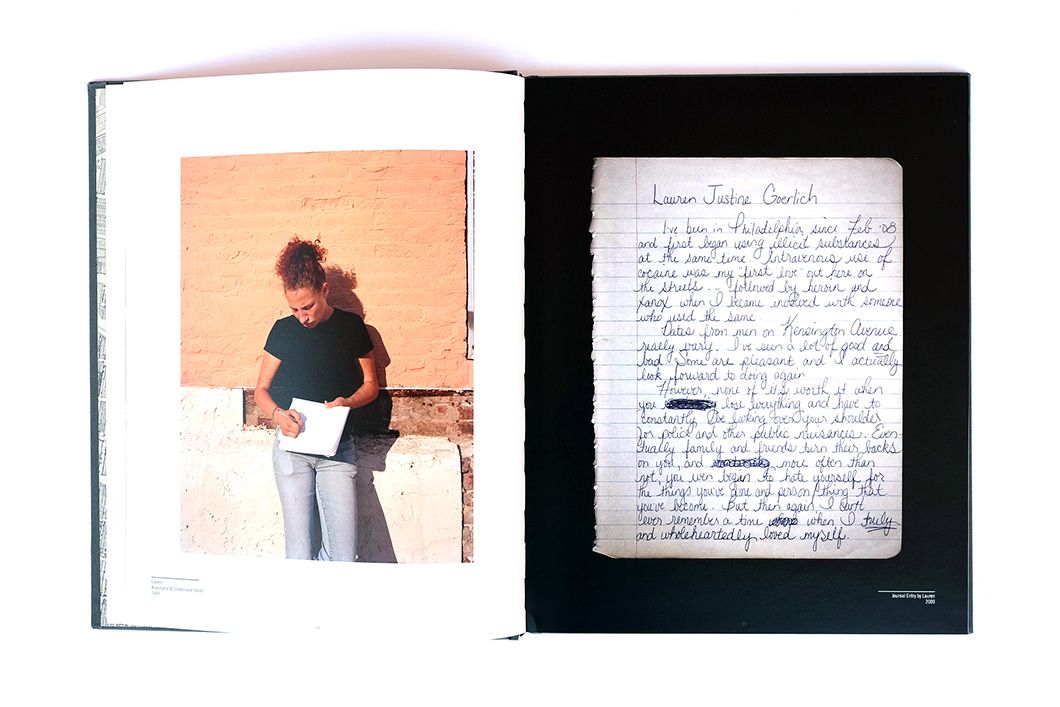 Lauren
Kensington & Cumberland Street
2009
Lauren Justine Goerlich
I've been in Philadelphia since Feb '08
and first began using illicit substances
at the same time. Intravenous use of
cocaine was my "first love" out here on
the streets -- followed by heroin and
xanax when I became involved with someone
who used the same.
Dates from men on Kensington Avenue
really vary. I've seen a lot of good and
bad. Some are pleasant and I actually
look forward to doing again.
However, none of it's worth it when
you lose everything and have to
constantly be looking over your shoulder
for police and other public nuisances. Even-
tually family and friends turn their backs
on you, and more often than
not, you even began to hate yourself for
the things you've done and person/thing that
you've become. But then again I can't
ever remember a time when I truly
and wholeheartedly loved myself.
Journal Entry by Lauren
2009